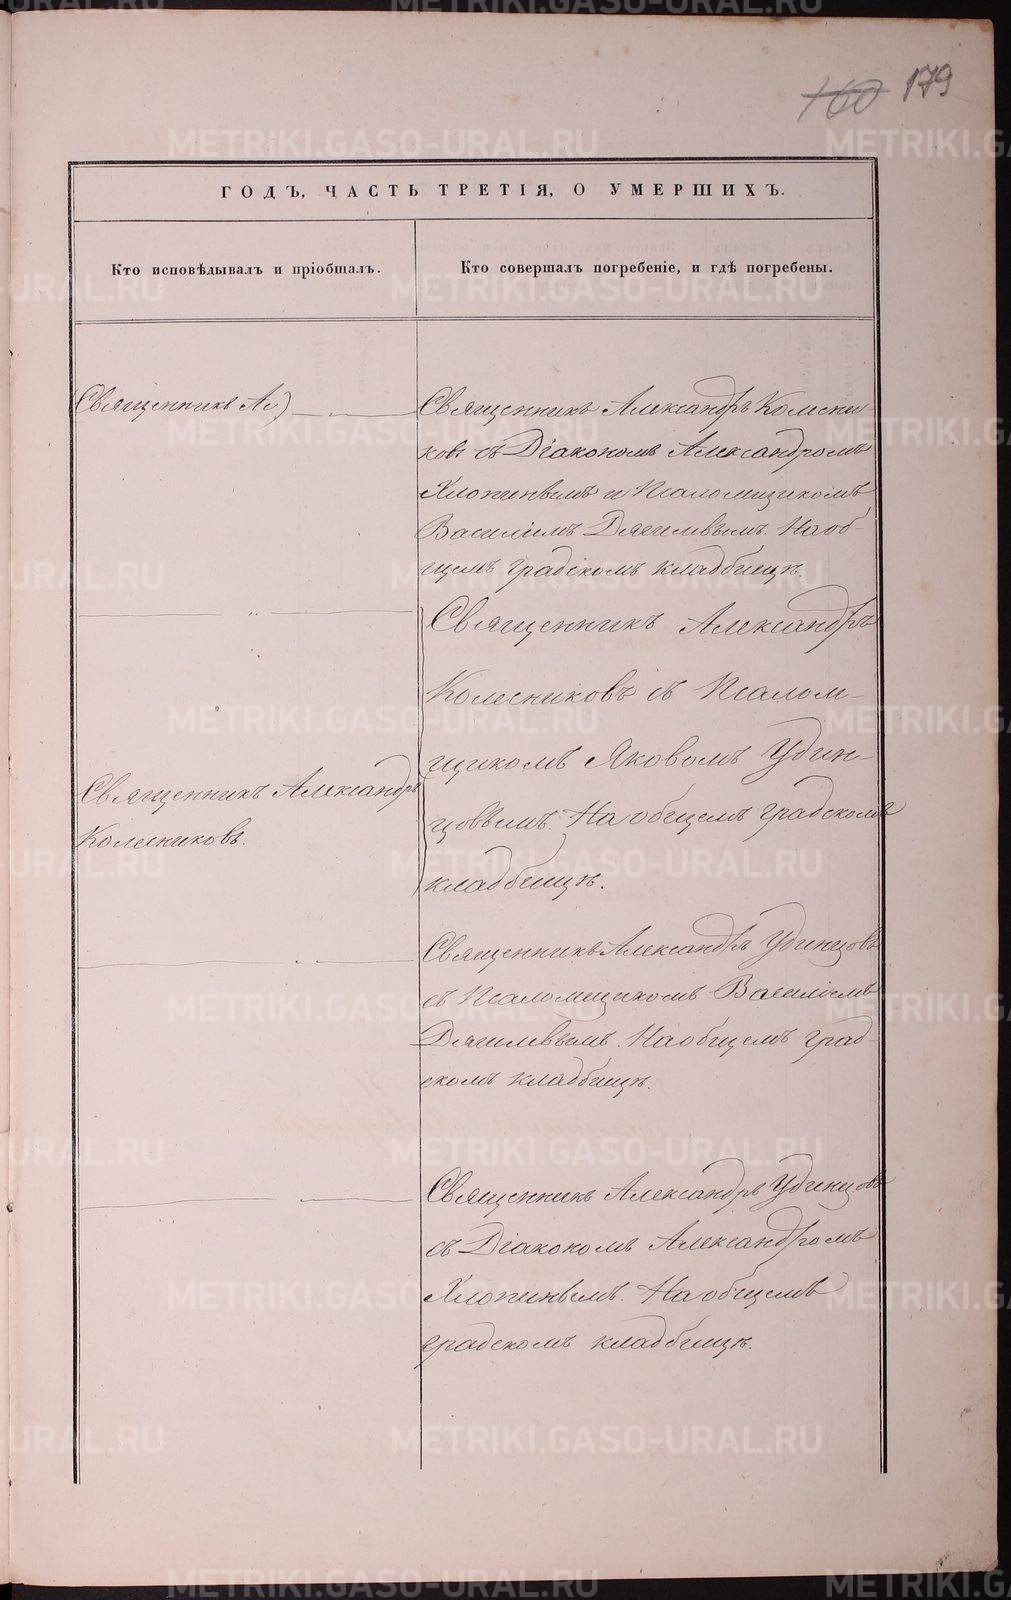 160 179
ГОДЪ, ЧАСТЬ ТРЕТІЯ, О УМЕРШИХЪ.
Кто исповѣдывалъ и пріобщалъ.
Кто совершалъ погребеніе, и гдѣ погребены.
(Священникъ Ал)
Священникъ Александръ Колесни-
ковъ съ Діакономъ Александромъ
Хлопинымъ и Псаломщикомъ
Василіемъ Дягилевымъ. На об-
щемъ градскомъ кладбищѣ.
Священникъ Александръ
Колесниковъ съ Псалом-
щикомъ Яковомъ Удин-
цовымъ. На общемъ градскомъ
кладбищѣ.
Священникъ Александръ
Колесниковъ.
Священникъ Александръ Удинцовъ
съ Псаломщикомъ Василіемъ
Дягилевымъ. На общемъ град-
скомъ кладбищѣ.
Священникъ Александръ Удинцовъ
съ Діакономъ Александромъ
Хлопинымъ. На общемъ
градскомъ кладбищѣ.
METRIKI.GASO-URAL.RU